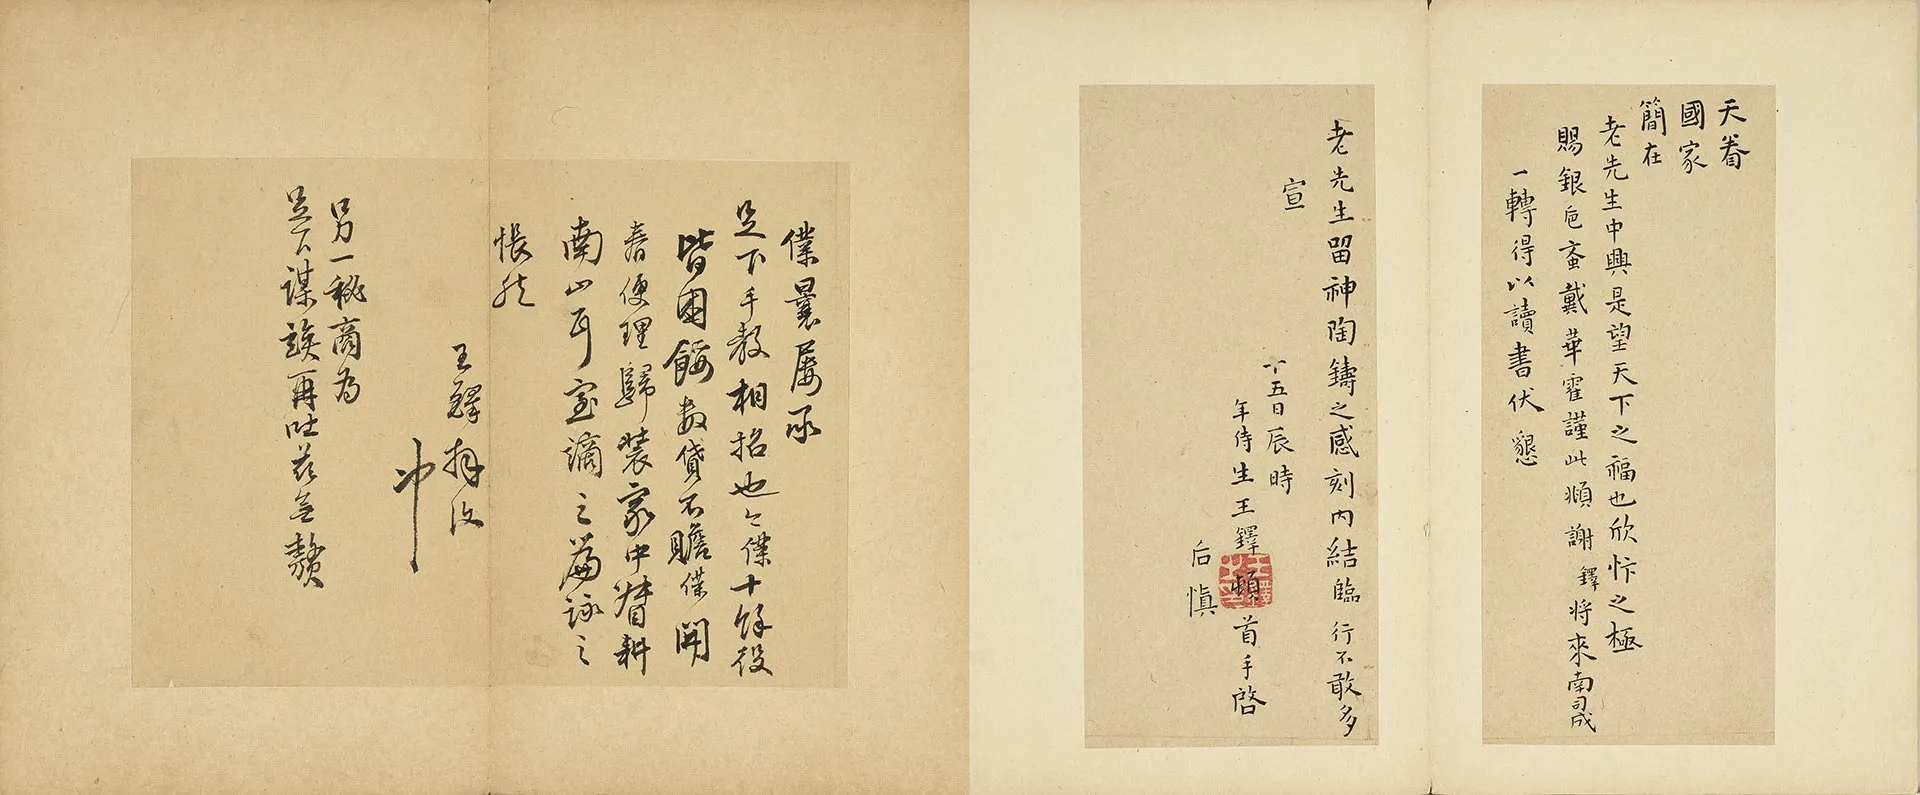 天眷
國家
簡在
老先生中興是望天下之福也欣忭之極
賜銀卮齋戴華寵謹此順謝鐸將來南司成
一轉得以讀書伏懇
老先生留神陶鑄之感刻內結臨行不敢多
宣
十五日辰時
年侍生王鐸頓首手啓
后慎
僕曩屢承
足下手教相招也僕十餘役
皆困餒數貸不贍僕開
春便理歸裝家中督耕
南山耳室謫之篇詠之
悵然
王鐸拜後
冲
另一秘商為
足下謀諛再吐茲無贅